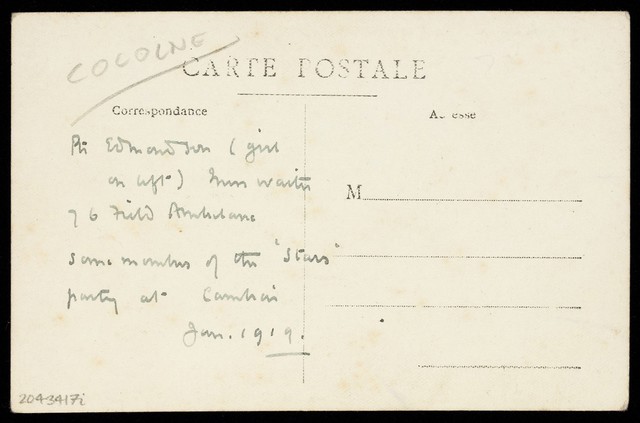 COCOINE
CARTE POSTALE
Correspondance
Ad esse
Pte Edmondson (girl
on left)
76 Field Ambulance
M
some members of the "Stars"
party at Cambrai
Jan. 1919.
2043417i